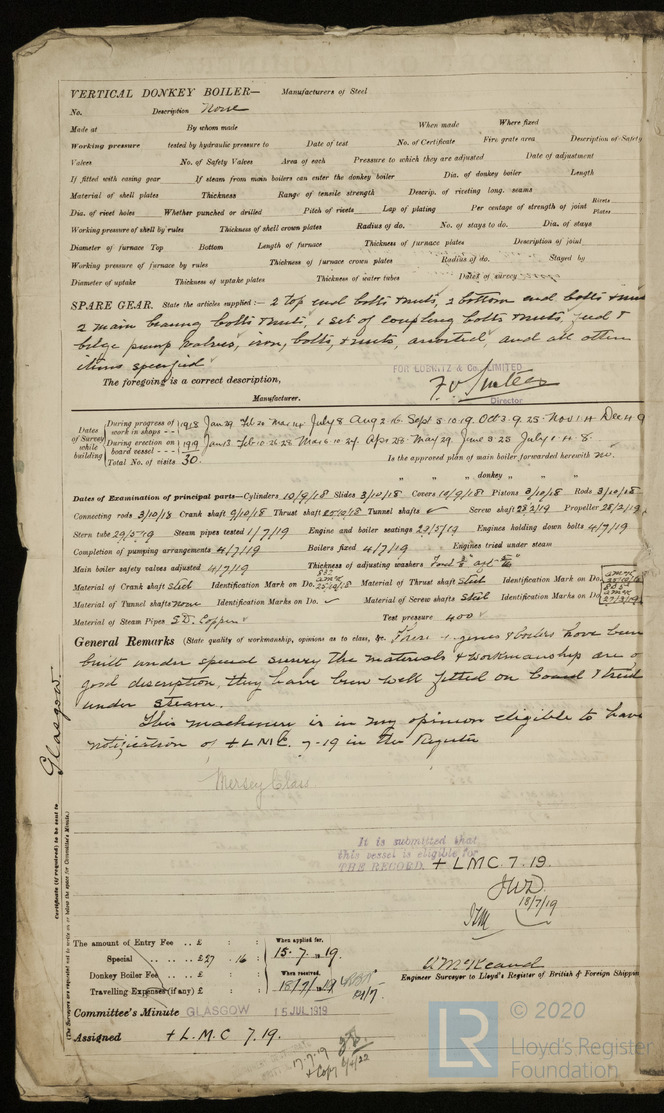 VERTICAL DONKEY BOILER— Manufacturers of Steel
No. Description None
Made at By whom made When made Where fixed
Working pressure tested by hydraulic pressure to Date of test No. of Certificate Fire grate area Description of Safety
Valves No. of Safety Valves Area of each Pressure to which they are adjusted Date of adjustment
If fitted with easing gear If steam from main boilers can enter the donkey boiler Dia. of donkey boiler Length
Material of shell plates Thickness Range of tensile strength Descrip. of riveting long. seams
Dia. of rivet holes Whether punched or drilled Pitch of rivets Lap of plating Per centage of strength of joint Rivets Plates
Working pressure of shell by rules Thickness of shell crown plates Radius of do. No. of stays to do. Dia. of stays
Diameter of furnace Top Bottom Length of furnace Thickness of furnace plates Description of joint
Working pressure of furnace by rules Thickness of furnace crown plates Radius of do. Stayed by
Diameter of uptake Thickness of uptake plates Thickness of water tubes Dates of survey
SPARE GEAR. State the articles supplied:— 2 top end bolts & nuts, 2 bottom end bolts & nuts
2 main bearing bolts & nuts, 1 set of coupling bolts & nuts, feed &
bilge pump valves, iron, bolts, & nuts, assorted, and all other
items specified
The foregoing is a correct description,
FOR LOBNITZ & Co., LIMITED
Manufacturer. Director
Dates of Survey while building
During progress of work in shops - - 1918 Jan 29 Feb 20 Mar 14 July 8 Aug 2 16 Sept 5 10 19 Oct 3 9 25 Nov 1 14 Dec 4 9
During erection on board vessel - - - 1919 Jan 13 Feb 10 26 28 Mar 6 10 27 Apr 28 May 29 June 3 25 July 1 4 8
Total No. of visits 30. Is the approved plan of main boiler forwarded herewith no.
" " " donkey " " "
Dates of Examination of principal parts—Cylinders 10/9/18 Slides 3/10/18 Covers 10/9/18 Pistons 3/10/18 Rods 3/10/18
Connecting rods 3/10/18 Crank shaft 9/10/18 Thrust shaft 25/10/18 Tunnel shafts ✓ Screw shaft 28/2/19 Propeller 28/2/19
Stern tube 29/5/19 Steam pipes tested 1/7/19 Engine and boiler seatings 29/5/19 Engines holding down bolts 4/7/19
Completion of pumping arrangements 4/7/19 Boilers fixed 4/7/19 Engines tried under steam
Main boiler safety valves adjusted 4/7/19 Thickness of adjusting washers
Material of Crank shaft Steel Identification Mark on Do. Material of Thrust shaft Steel Identification Mark on Do.
Material of Tunnel shafts None Identification Marks on Do. ✓ Material of Screw shafts Steel Identification Marks on Do.
Material of Steam Pipes S.D. Copper Test pressure 400
General Remarks (State quality of workmanship, opinions as to class, &c. These engines & boilers have been
built under special survey the materials & workmanship are o
good description, they have been well fitted on board & tried
under steam.
This machinery is in my opinion eligible to have
notification of + LMC. 7-19 in the Register
Mersey Class
Glasgow
Certificate (if required) to be sent to
(The Surveyors are requested not to write on or below the space for Committee's Minute.)
It is submitted that
this vessel is eligible for
THE RECORD. + LMC 7.19.
JWD.
18/7/19
The amount of Entry Fee .. £ : : When applied for,
Special .. .. £27 : 16 : 15.7.19.
Donkey Boiler Fee .. .. £ : : When received,
Travelling Expenses (if any) £ : : 18/7/19
A McKeand
Engineer Surveyor to Lloyd's Register of British & Foreign Shippin
Committee's Minute GLASGOW 15 JUL 1919
Assigned + L.M.C 7.19.
17.7.19
+ Copy 6/4/22
LR © 2020
Lloyd's Register
Foundation